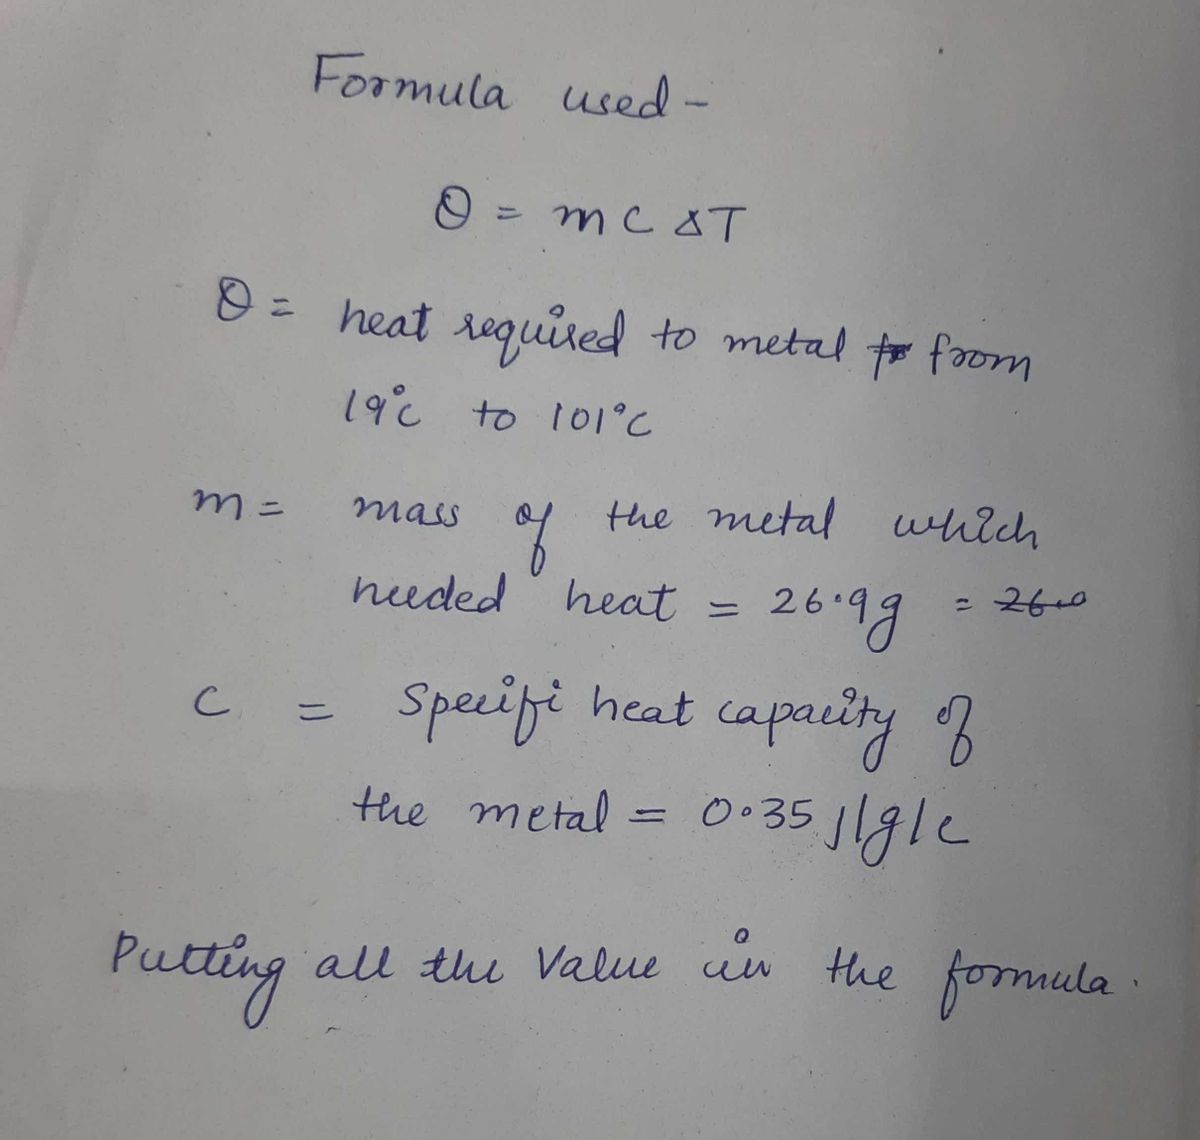 Formula used -
Q = m c ΔT
Q = heat required to metal from
19°c to 101°c
m = mass of the metal which
needed heat = 26.9g = 26.0
c = Specifi heat capacity of
the metal = 0.35 j/g/c
Putting all the Value in the formula.